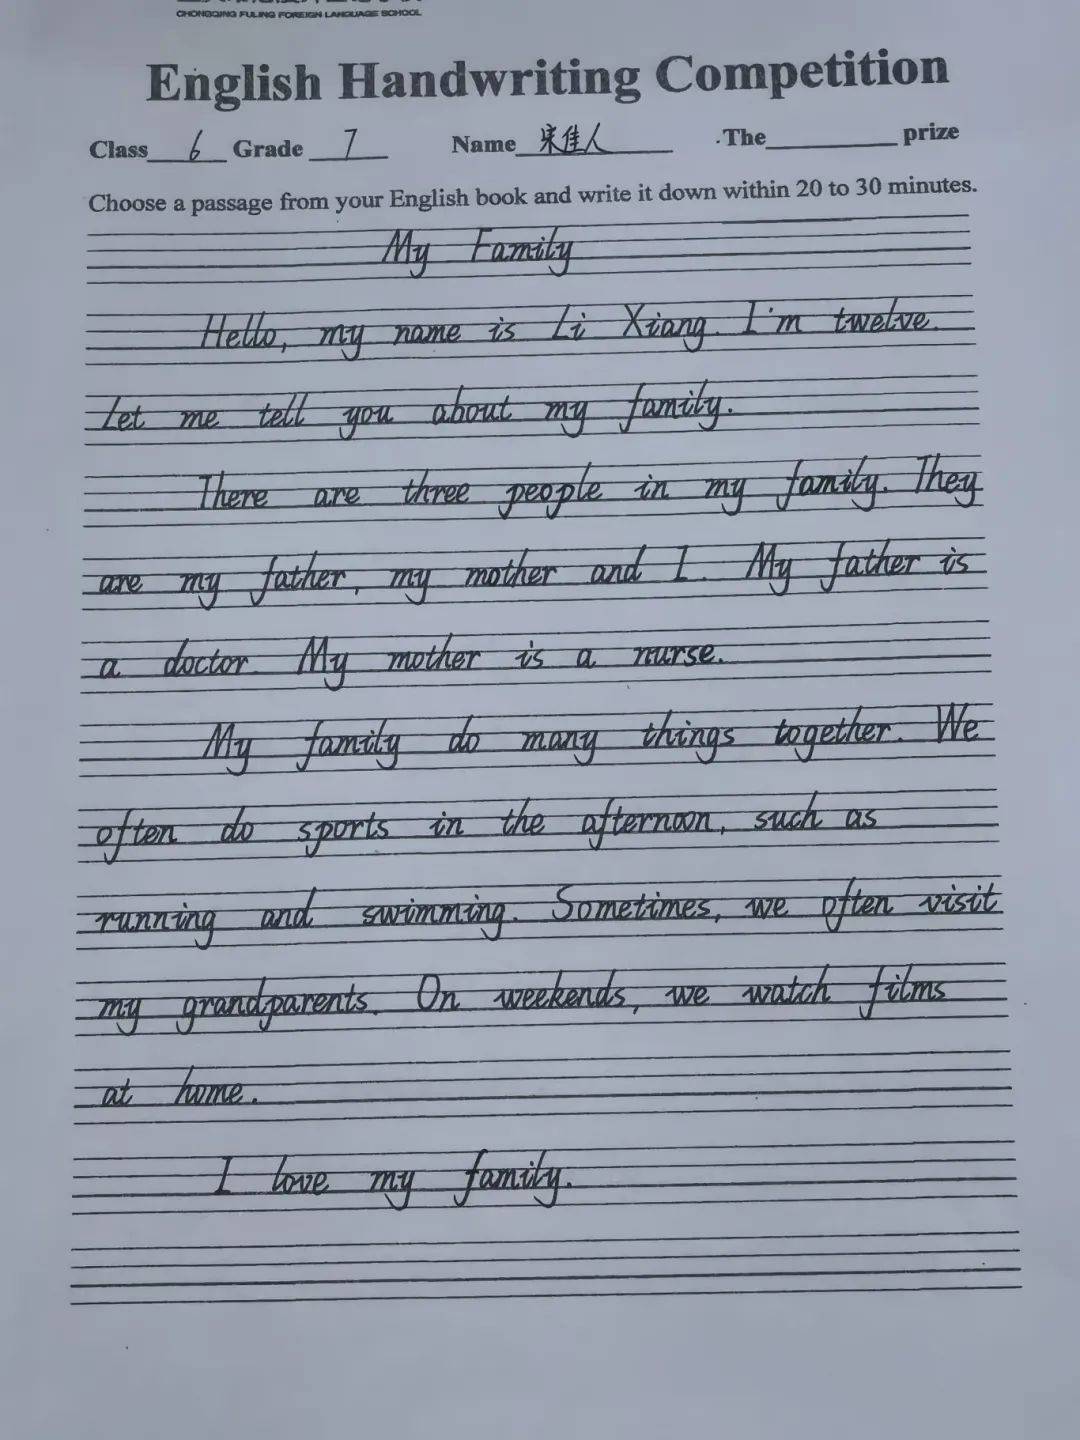 CHONGQING FULING FOREIGN LANGUAGE SCHOOL
English Handwriting Competition
Class 6 Grade 7 Name 宋佳人 The prize
Choose a passage from your English book and write it down within 20 to 30 minutes.
My Family
Hello, my name is Li Xiang. I'm twelve.
Let me tell you about my family.
There are three people in my family. They
are my father, my mother and I. My father is
a doctor. My mother is a nurse.
My family do many things together. We
often do sports in the afternoon, such as
running and swimming. Sometimes, we often visit
my grandparents. On weekends, we watch films
at home.
I love my family.